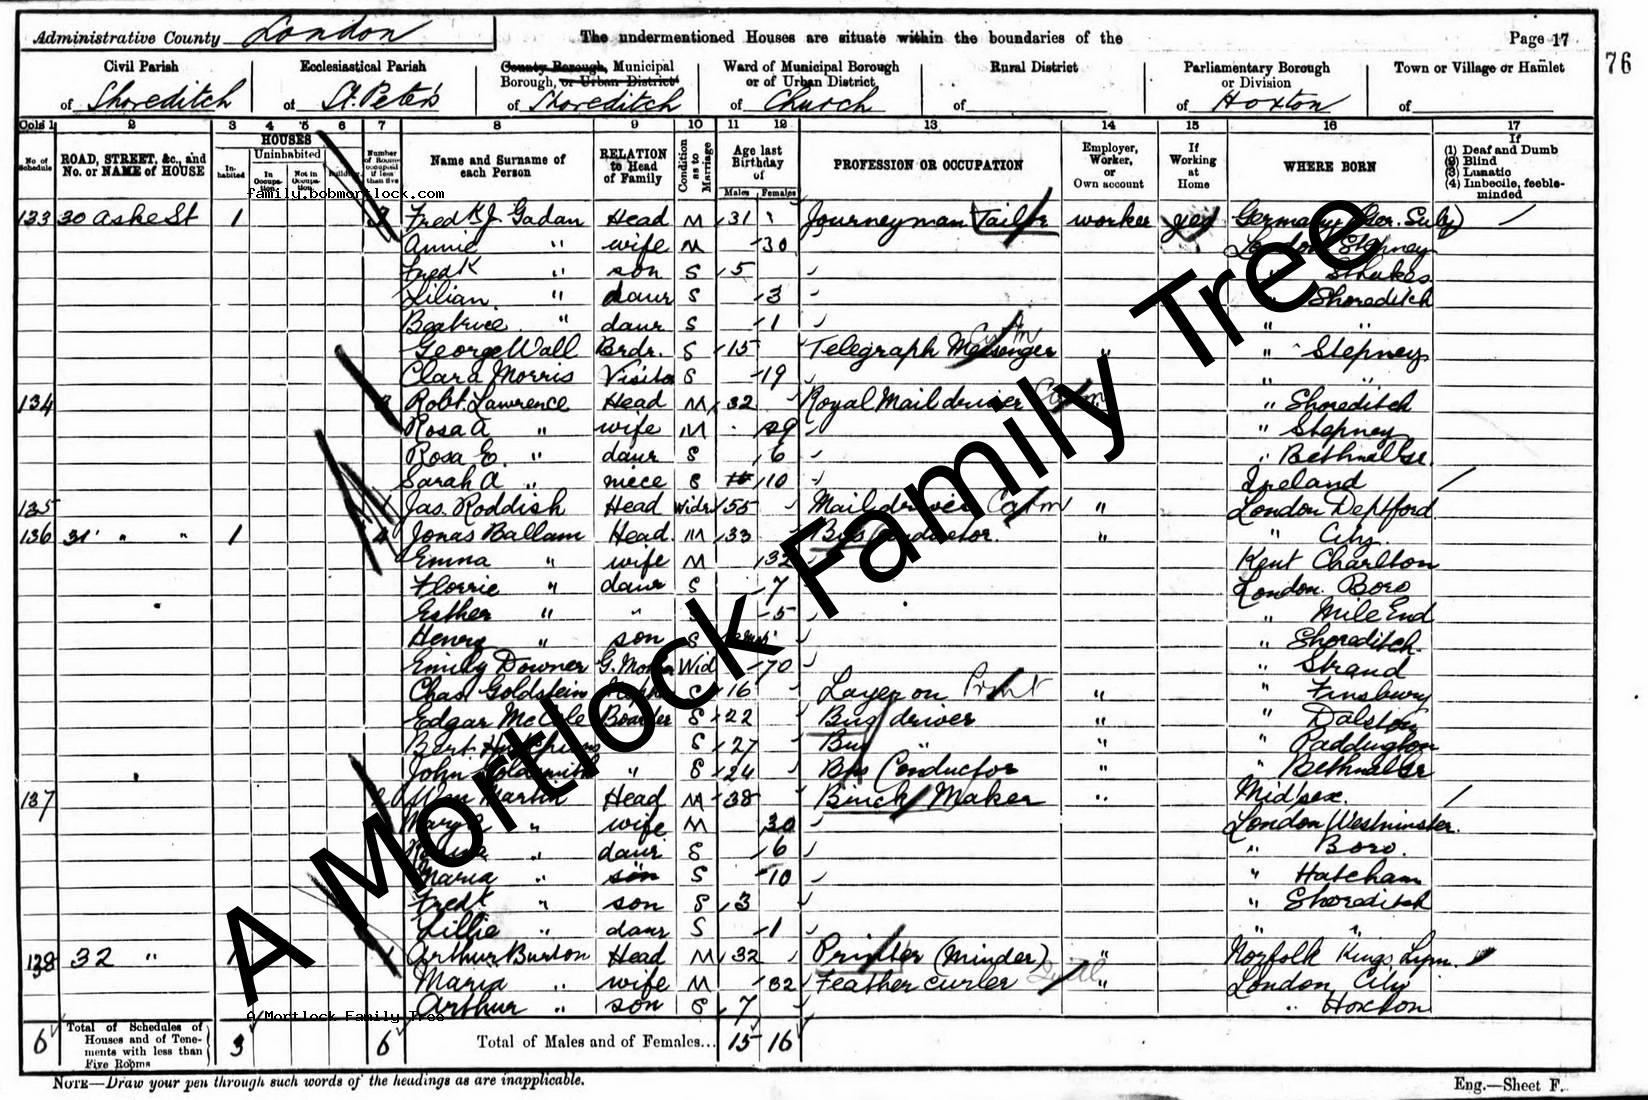 Administrative County London
The undermentioned Houses are situate within the boundaries of the
Page 17
76
Civil Parish of Shoreditch
Ecclesiastical Parish of St. Peter's
County Borough, Municipal Borough, or Urban District of Shoreditch
Ward of Municipal Borough or of Urban District of Church
Rural District of
Parliamentary Borough or Division of Hoxton
Town or Village or Hamlet of
Cols 1 2 3 4 5 6 7 8 9 10 11 12 13 14 15 16 17
No. of Schedule
ROAD, STREET, &c., and No. or NAME of HOUSE
HOUSES
Inhabited
Uninhabited
In Occupation
Not in Occupation
Building
Number of Rooms occupied if less than five
Name and Surname of each Person
RELATION to Head of Family
Condition as to Marriage
Age last Birthday of
Males Females
PROFESSION OR OCCUPATION
Employer, Worker, or Own account
If Working at Home
WHERE BORN
If
(1) Deaf and Dumb
(2) Blind
(3) Lunatic
(4) Imbecile, feeble-minded
family.bobmortlock.com
133 30 Aske St 1 3 Fredk J. Gadan Head M 31 Journeyman Tailor worker yes Germany
Annie " wife M 30 London Stepney
Fredk " son S 5
Lilian " daur S 3 " Shoreditch
Beatrice " daur S 1 " "
George Wall Brdr. S 15 Telegraph Messenger " " Stepney
Clara Morris Visitor S 19 " "
134 Robt. Lawrence Head M 32 Royal Mail driver " Shoreditch
Rosa A " wife M 29 " Stepney
Rosa E. " daur S 6 " Bethnal Gr.
Sarah A " niece S 10 Ireland
135 Jas. Roddish Head Widr 55 Mail driver Carm " London Deptford
136 31 " " 1 4 Jonas Ballam Head M 33 Bus Conductor. " " City
Emma " wife M 32 Kent Charlton
Florrie " daur S 7 London Boro
Esther " " S 5 " Mile End
Henry " son S " Shoreditch
Emily Downer Wid 70 " Strand
Chas Goldstein S 16 Layer on Print " " Finsbury
Edgar Boarder S 22 Bus driver " " Dalston
Bert S 27 Bus " " " Paddington
John Goldsmith " S 24 Bus Conductor " " Bethnal Gr
137 Wm Martin Head M 38 Maker " Midsex.
Mary " wife M 30 London Westminster.
" daur S 6 " Boro.
Maria " son S 10 " Hatcham
Fredk " son S 3 " Shoreditch
Lillie " daur S 1 " "
138 32 " Arthur Burton Head M 32 Printer (Minder) " Norfolk Kings Lynn
Maria " wife M 32 Feather Curler " London City
Arthur " son S 7 " Hoxton
A Mortlock Family Tree
6 Total of Schedules of Houses and of Tenements with less than Five Rooms 3 6 Total of Males and of Females... 15 16
NOTE—Draw your pen through such words of the headings as are inapplicable.
Eng.—Sheet F.
A Mortlock Family Tree